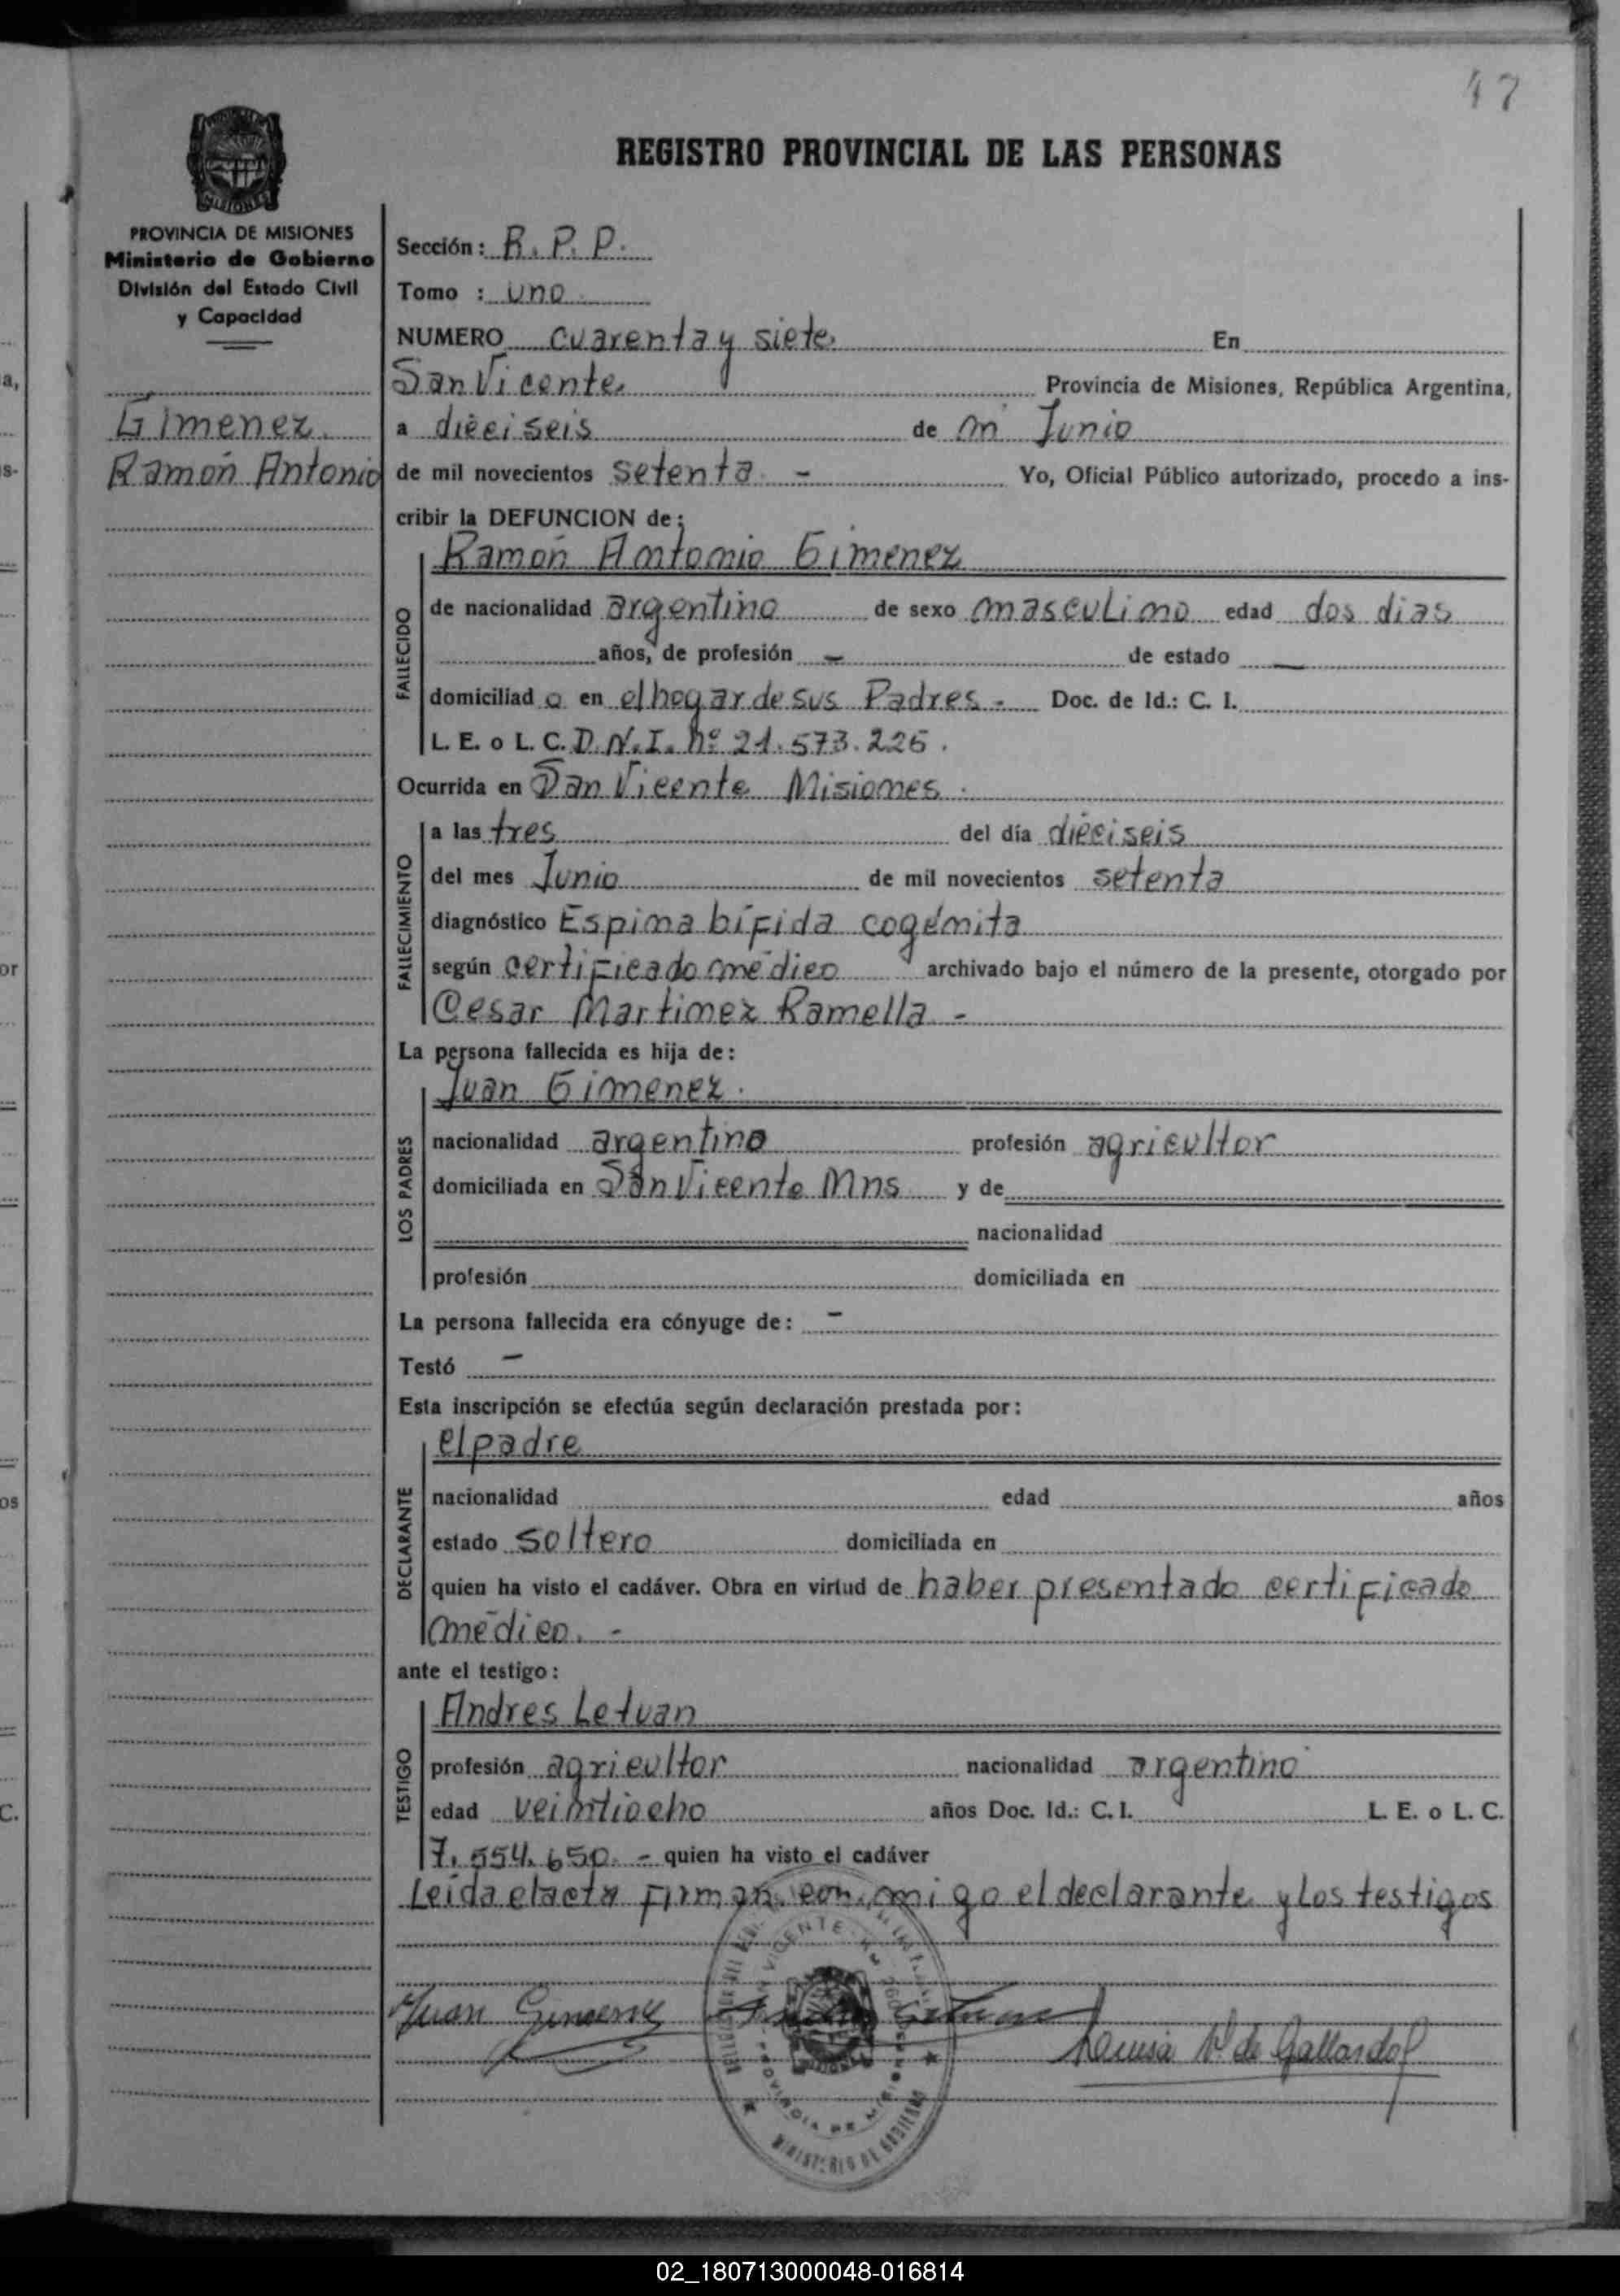 47
REGISTRO PROVINCIAL DE LAS PERSONAS
PROVINCIA DE MISIONES
Ministerio de Gobierno
División del Estado Civil
y Capacidad
Gimenez.
Ramón Antonio
Sección: R. P. P.
Tomo : uno
NUMERO cuarenta y siete En
San Vicente Provincia de Misiones, República Argentina,
a dieciseis de m Junio
de mil novecientos setenta - Yo, Oficial Público autorizado, procedo a ins-
cribir la DEFUNCION de:
Ramón Antonio Gimenez
FALLECIDO
de nacionalidad argentino de sexo masculino edad dos dias
años, de profesión - de estado —
domiciliad o en el hogar de sus Padres - Doc. de Id.: C. I.
L. E. o L. C. D.N.I. nº 21.573.226.
Ocurrida en San Vicente Misiones.
FALLECIMIENTO
a las tres del día dieciseis
del mes Junio de mil novecientos setenta
diagnóstico Espina bífida cogénita
según certificado médico archivado bajo el número de la presente, otorgado por
Cesar Martinez Ramella -
La persona fallecida es hija de:
LOS PADRES
Juan Gimenez.
nacionalidad argentino profesión agricultor
domiciliada en San Vicente Mns y de
nacionalidad
profesión domiciliada en
La persona fallecida era cónyuge de: -
Testó -
Esta inscripción se efectúa según declaración prestada por:
DECLARANTE
el padre
nacionalidad edad años
estado soltero domiciliada en
quien ha visto el cadáver. Obra en virtud de haber presentado certificado
médico. -
ante el testigo:
TESTIGO
Andres Letuan
profesión agricultor nacionalidad argentino
edad veintiocho años Doc. Id.: C. I. L. E. o L. C.
7.554.650. - quien ha visto el cadáver
Leída el acta firman con migo el declarante y los testigos
Juan Gimenez
de Gallardo
VICENTE
PROVINCIA DE MISIONES
MINISTERIO DE GOBIERNO
02_180713000048-016814